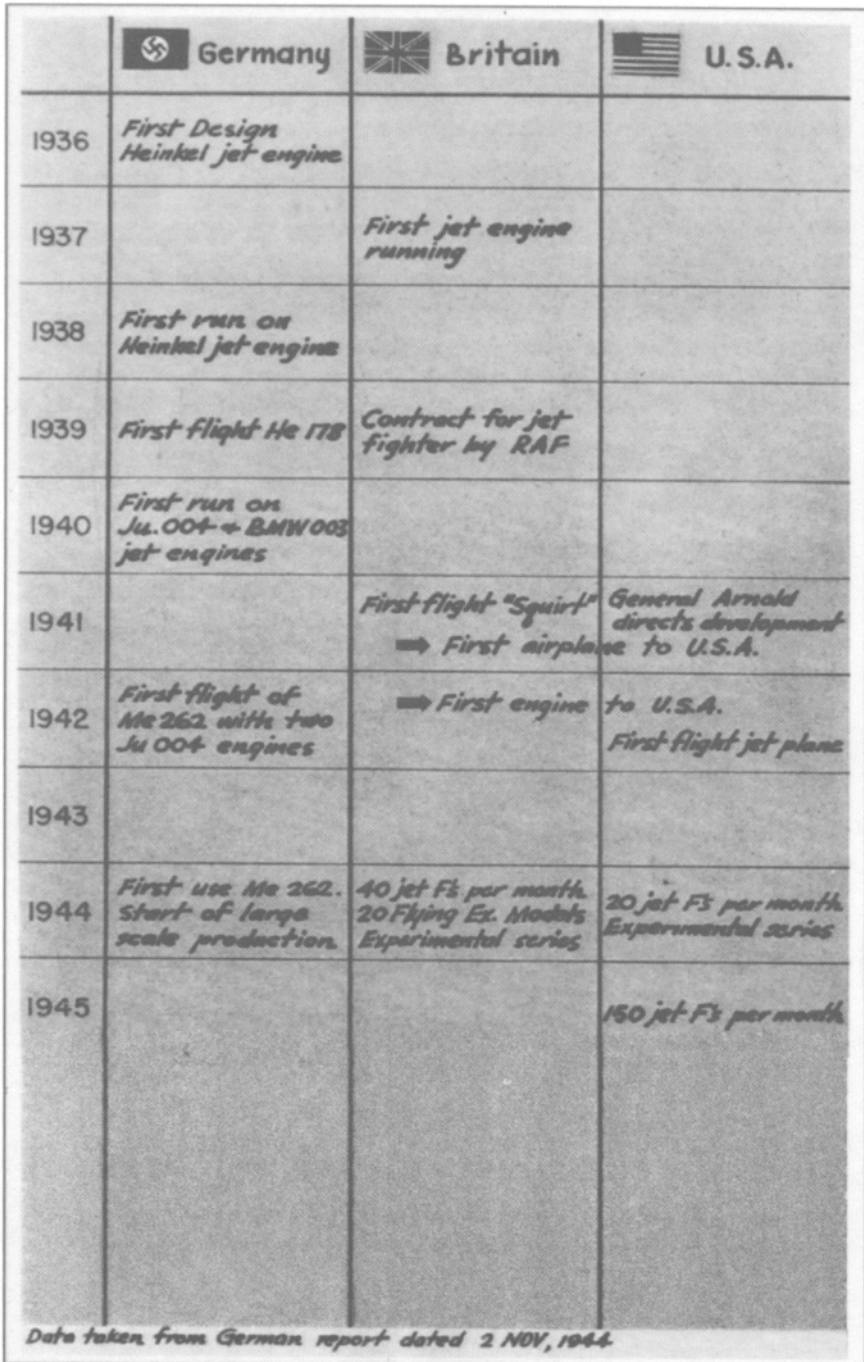 Germany Britain U.S.A.
1936
First Design
Heinkel jet engine
1937
First jet engine
running
1938
First run on
Heinkel jet engine
1939
First flight He 178
Contract for jet
fighter by RAF
1940
First run on
Ju.004 & BMW 003
jet engines
1941
First flight "Squirt"
General Arnold
directs development
➡ First airplane to U.S.A.
1942
First flight of
Me 262 with two
Ju 004 engines
➡ First engine to U.S.A.
First flight jet plane
1943
1944
First use Me 262.
Start of large
scale production
40 jet F's per month
20 Flying Ex. Models
Experimental series
20 jet F's per month
Experimental series
1945
150 jet F's per month
Data taken from German report dated 2 NOV, 1944